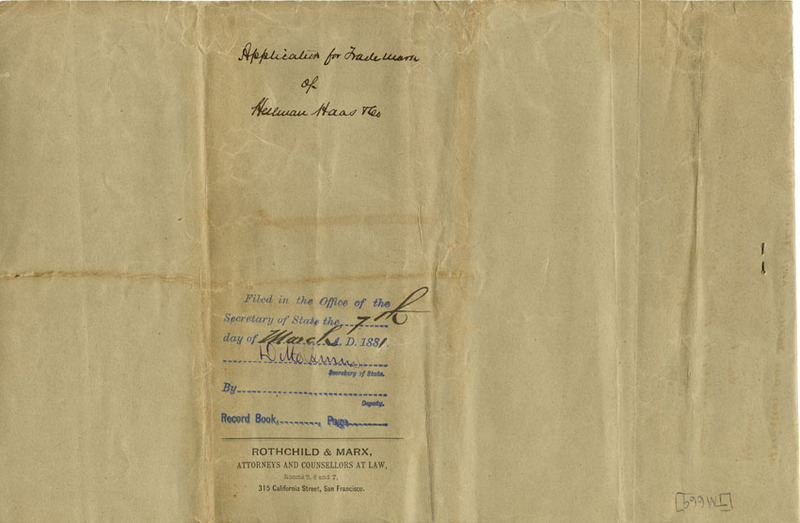 Application for Trade Mark
of
Hellman Haas & Co
Filed in the Office of the
Secretary of State the 7th
day of March A. D. 1881.
Secretary of State.
By
Deputy.
Record Book, Page
ROTHCHILD & MARX,
ATTORNEYS AND COUNSELLORS AT LAW,
Rooms 5, 6 and 7,
315 California Street, San Francisco.